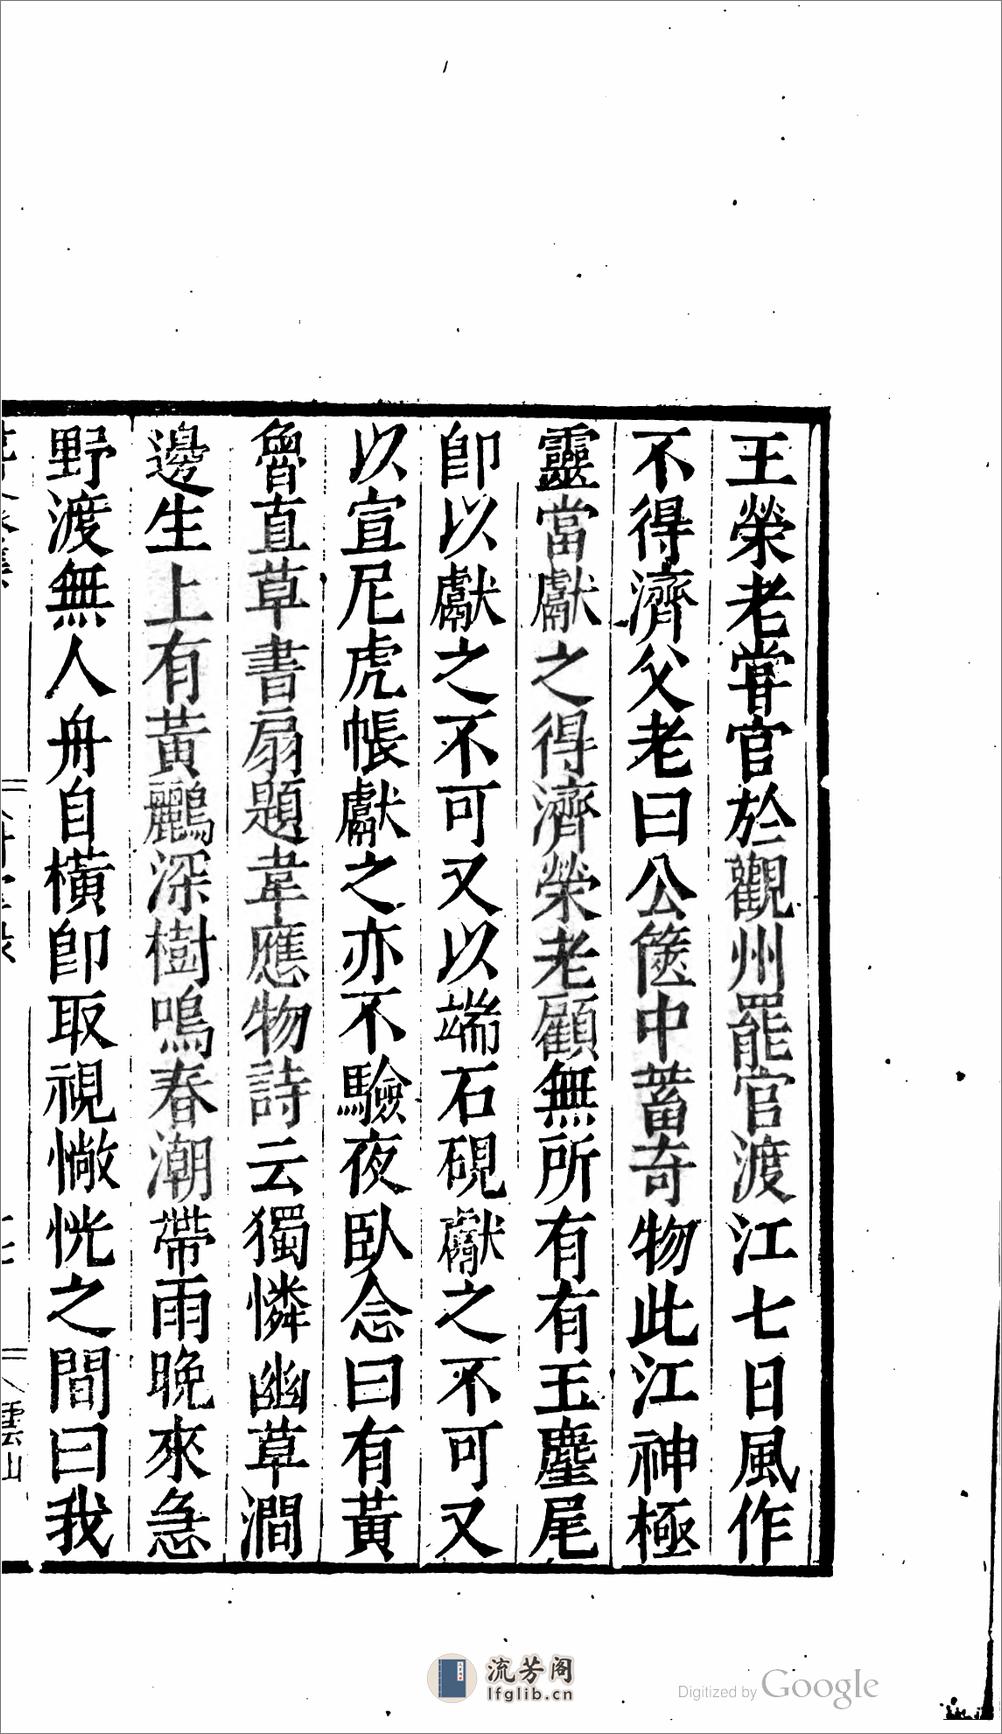 王榮老甞官於觀州罷官渡江七日風作
不得濟父老曰公篋中蓄奇物此江神極
靈當獻之得濟榮老顧無所有有玉麈尾
卽以獻之不可又以端石硯獻之不可又
以宣尼虎帳獻之亦不驗夜臥念曰有黃
魯直草書扇題韋應物詩云獨憐幽草澗
邊生上有黃鸝深樹鳴春潮帶雨晚來急
野渡無人舟自橫卽取視惝恍之間曰我
雲山
流芳阁
lfglib.cn
Digitized by Google